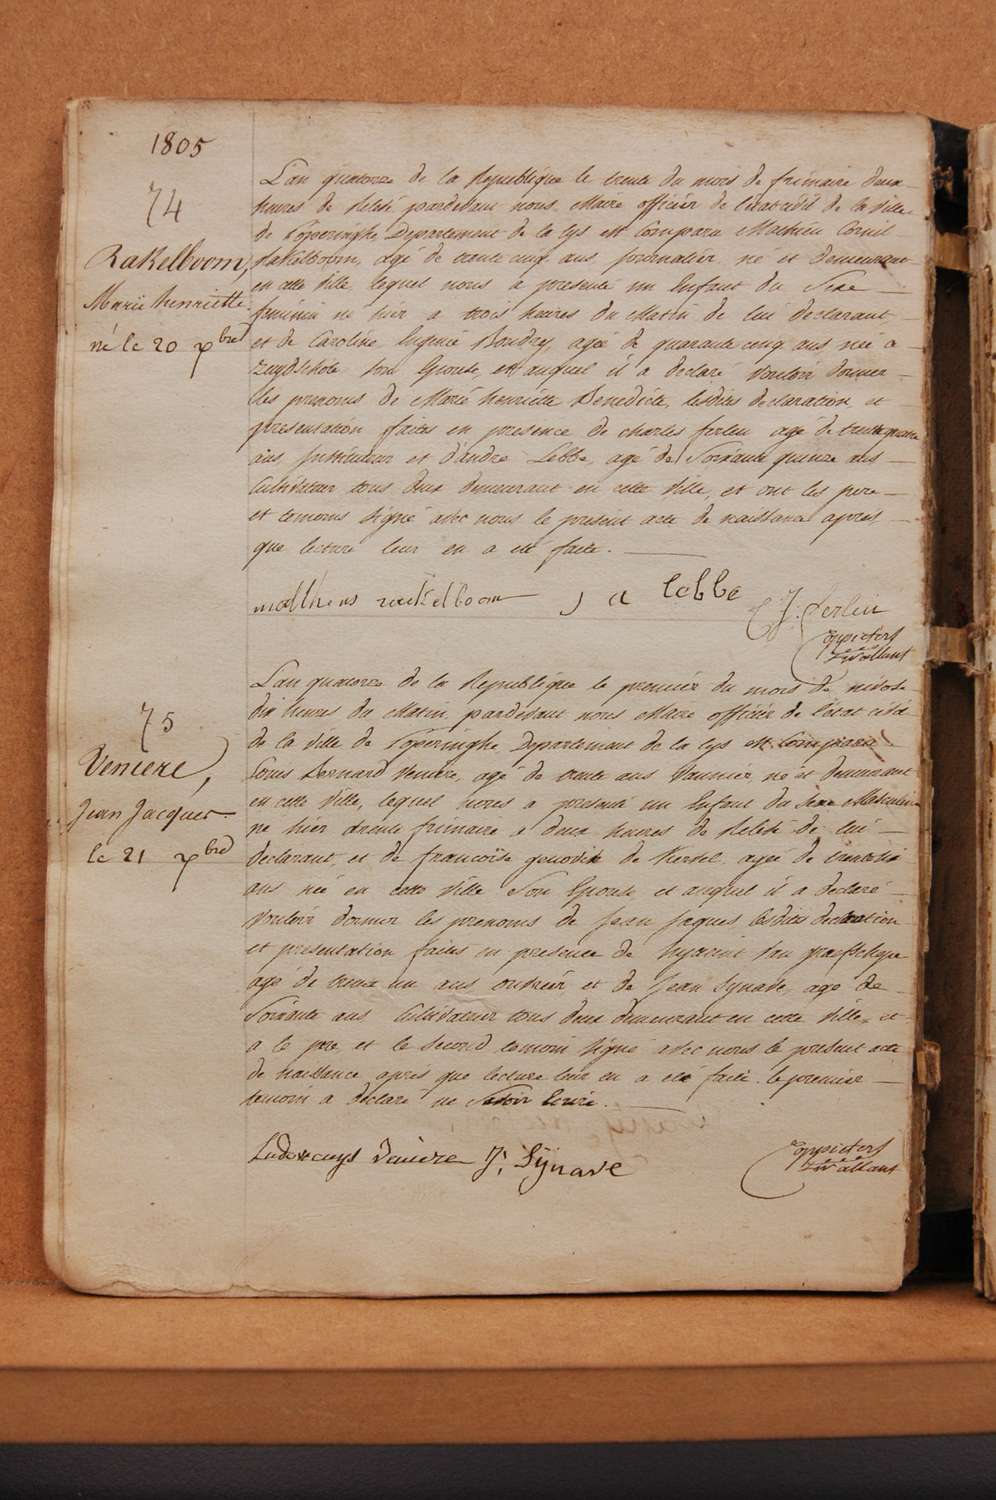 1805
74
Rakelboom,
Marie henriette
né le 20 xbre
L'an quatorze de la Republique le trente du mois de frimaire deux
heures de Relevé pardevant nous Maire officier de l'etat civil de la ville
de Poperinghe, Departement de la Lys est Comparu Mathieu Cornil
Rakelboom, agé de trente cinq ans journalier né et demeurant
en cette ville, lequel nous a presenté un Enfant du Sexe
feminin né hier a trois heures du Matin de lui declarant
et de Caroline Eugenie Boudry, agée de quarante cinq ans née a
Zuydschote son Epouse, et auquel il a declaré vouloir donner
les prenoms de Marie henriette Benedicte, lesdites declaration et
presentation faites en presence de charles ferlin agé de trente quatre
ans, et d'andré Lebbe, agé de Soixante quinze ans
Cultivateur tous deux demeurant en cette Ville, et ont les pere
et temoins Signé avec nous le present acte de naissance apres
que lecture leur en a été faite.
mathieus rackelboom J a lebbe
C J: ferlin
75
Veniere,
Jean Jacques
le 21 xbre
L'an quatorze de la Republique le premier du mois de nivose
dix heures du Matin pardevant nous Maire officier de l'etat civil
de la Ville de Poperinghe Departement de la Lys est Comparu
Louis Bernard Veniere, agé de trente ans Vannier, né et demeurant
en cette Ville, lequel nous a presenté un Enfant du Sexe Masculin
né hier trente frimaire a deux heures de Relevé de lui
declarant, et de francoise de Kervel agée de
ans née en cette Ville Son Epouse et auquel il a declaré
Vouloir donner les prenoms de Jean Jaques lesdites declaration
et presentation faites en presence de
agé de trente un ans ouvrier, et de Jean Synave, agé de
Soixante ans Cultivateur tous deux demeurant en cette Ville, et
a le pere et le Second temoin Signé avec nous le present acte
de naissance, apres que lecture leur en a été faite le premier
temoin a declaré ne Savoir Ecrire.
Ludovicuys Veniere J: Sÿnave